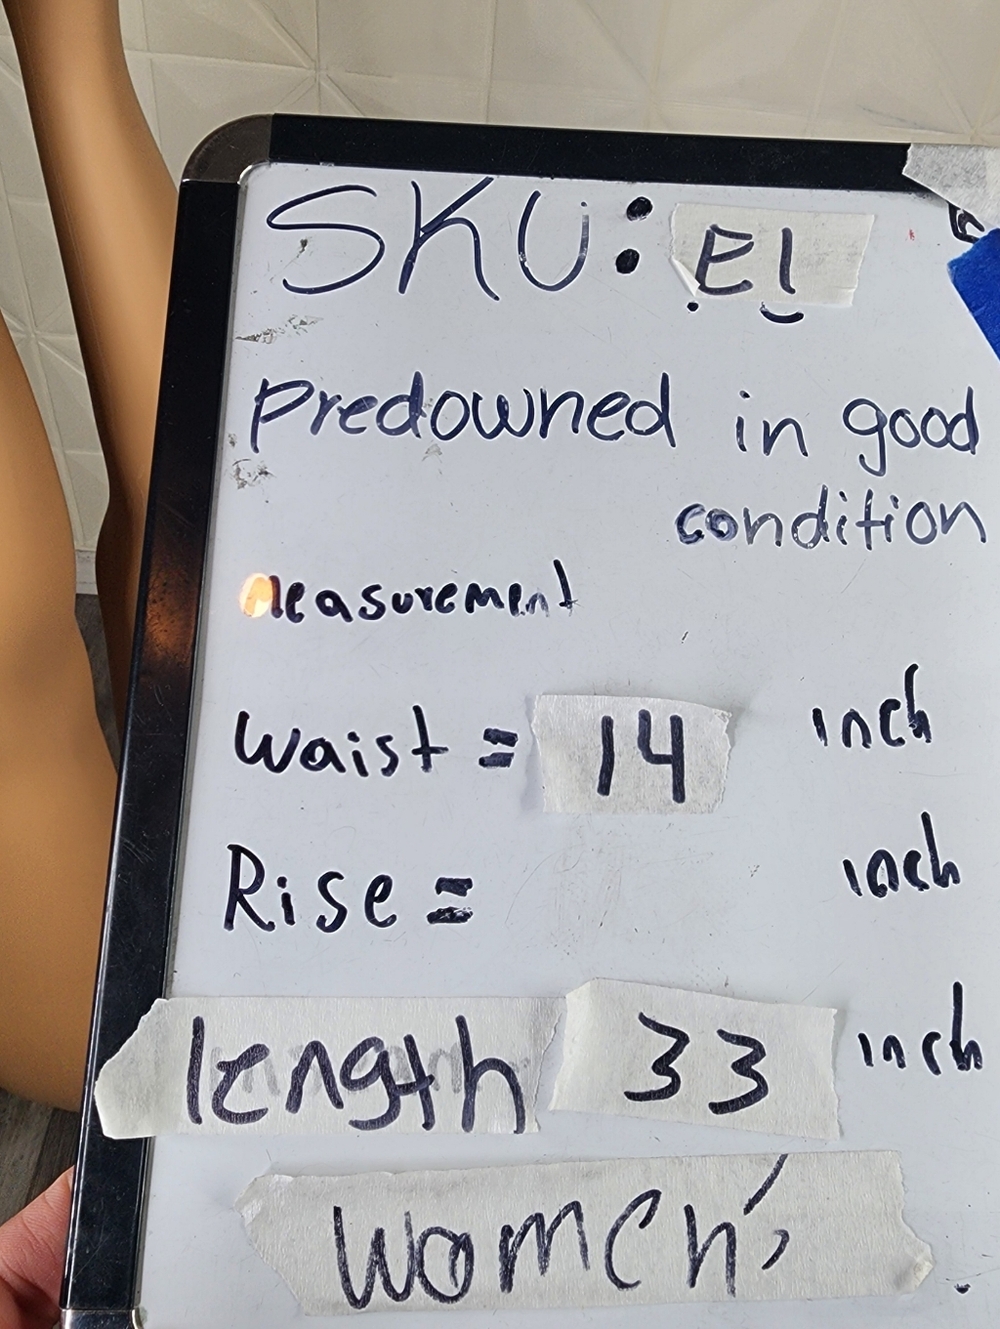 SKU: E1
Predowned in good
condition
Measurement
Waist = 14 inch
Rise = inch
length 33 inch
women'